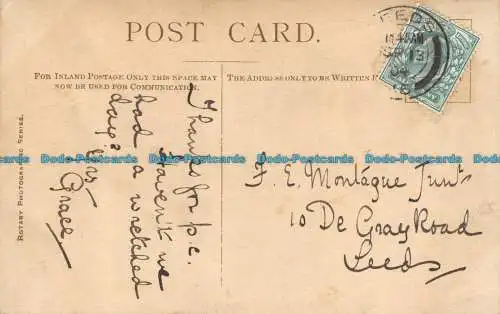 POST CARD.
FOR INLAND POSTAGE ONLY THIS SPACE MAY
NOW BE USED FOR COMMUNICATION.
THE ADDRESS ONLY TO BE WRITTEN
LEEDS
ROTARY PHOTOGRAPHIC SERIES.
Thanks for p.c.
Haven't we
had a wretched
day?
Yrs
Grace
F. E. Montague Junr
10 De Gray Road
Leeds
Dodo-Postcards Dodo-Postcards Dodo-Postcards Dodo-Postcards Dodo-Postcards